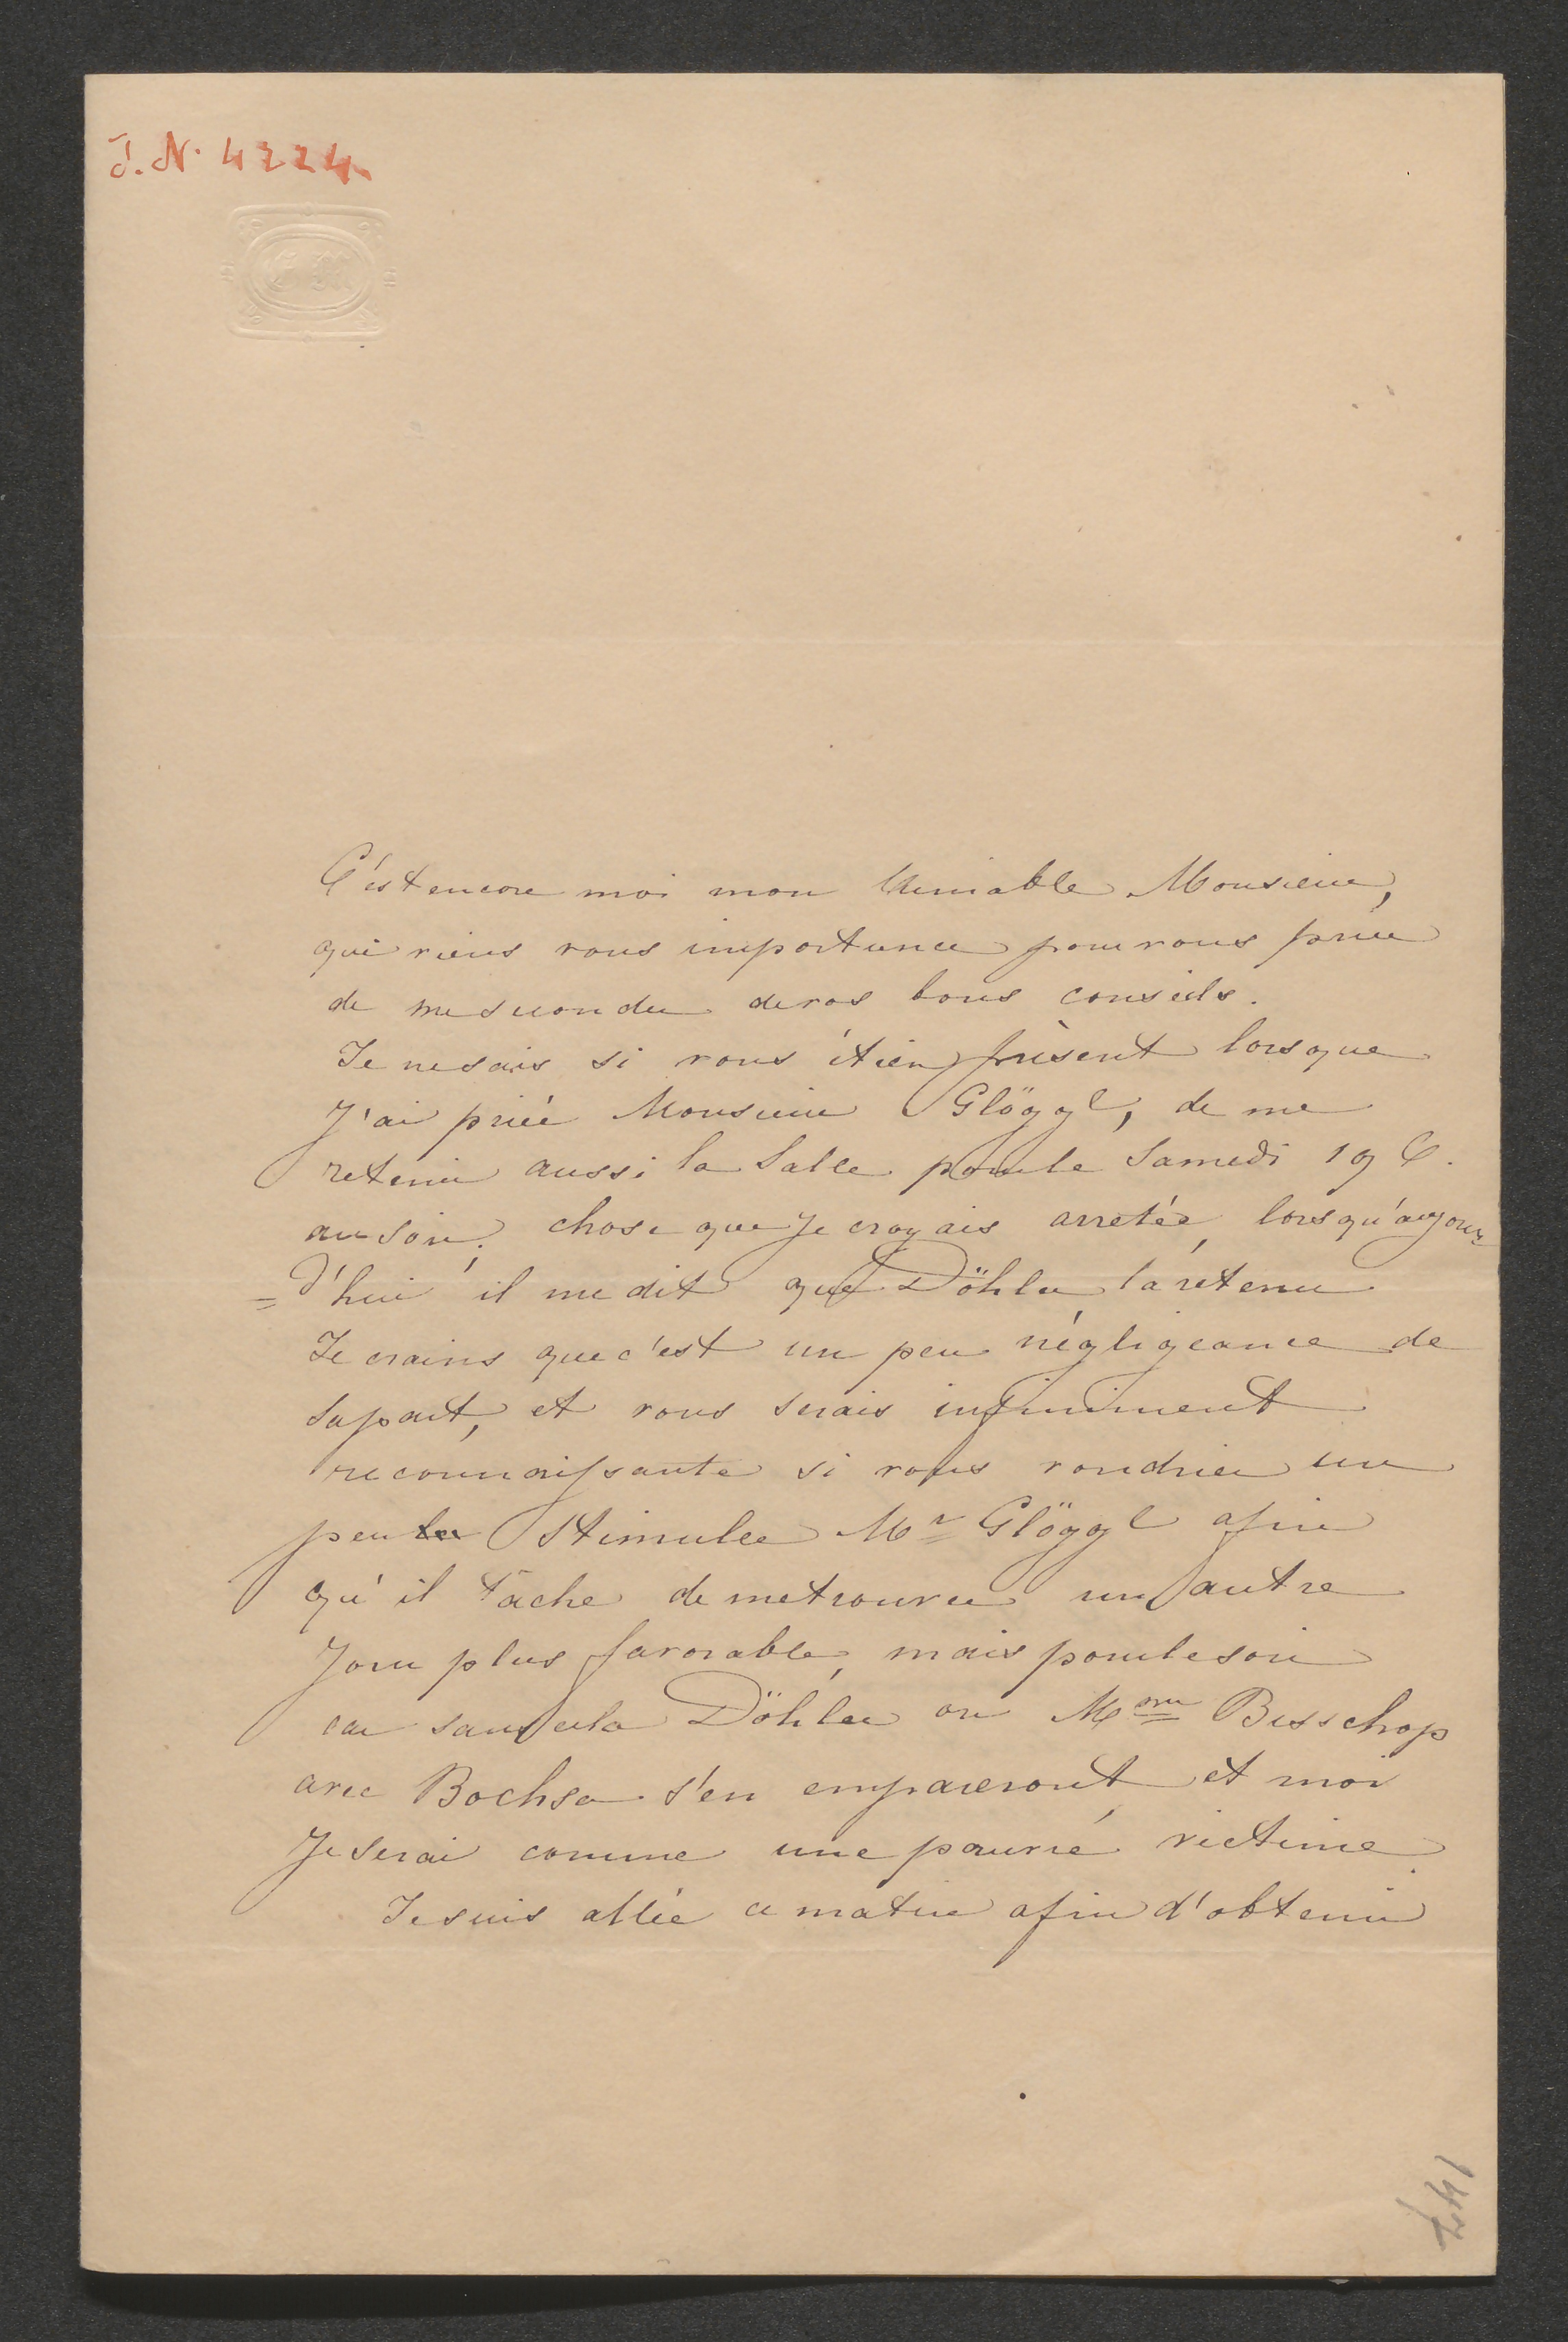 J. N. 4224
C'est encore moi mon Aimable Monsieur,
qui viens vous importuner pour vous prier
de me seconder de vos bons conseils.
Je ne sais si vous étiez présent lorsque
J'ai priée Monsieur Glöggl, de me
retenir aussi la Salle pour le Samedi 19 C.
au soir, chose que Je croyais arretée, lorsqu'aujour
=d'hui il me dit que Döhler l'a retenu
Je crains que c'est un peu négligeance de
sa part, et vous serais infiniment
reconnaissante si vous voudriez un
peu Stimuler Mr Glöggl afin
qu'il tâche de me trouver un autre
Jour plus favorable, mais pour le soir
car sans cela Döhler ou Mme Bisschop
avec Bochsa s'en empareront, et moi
Je serai comme une pauvre victime.
Je suis allée ce matin afin d'obtenir